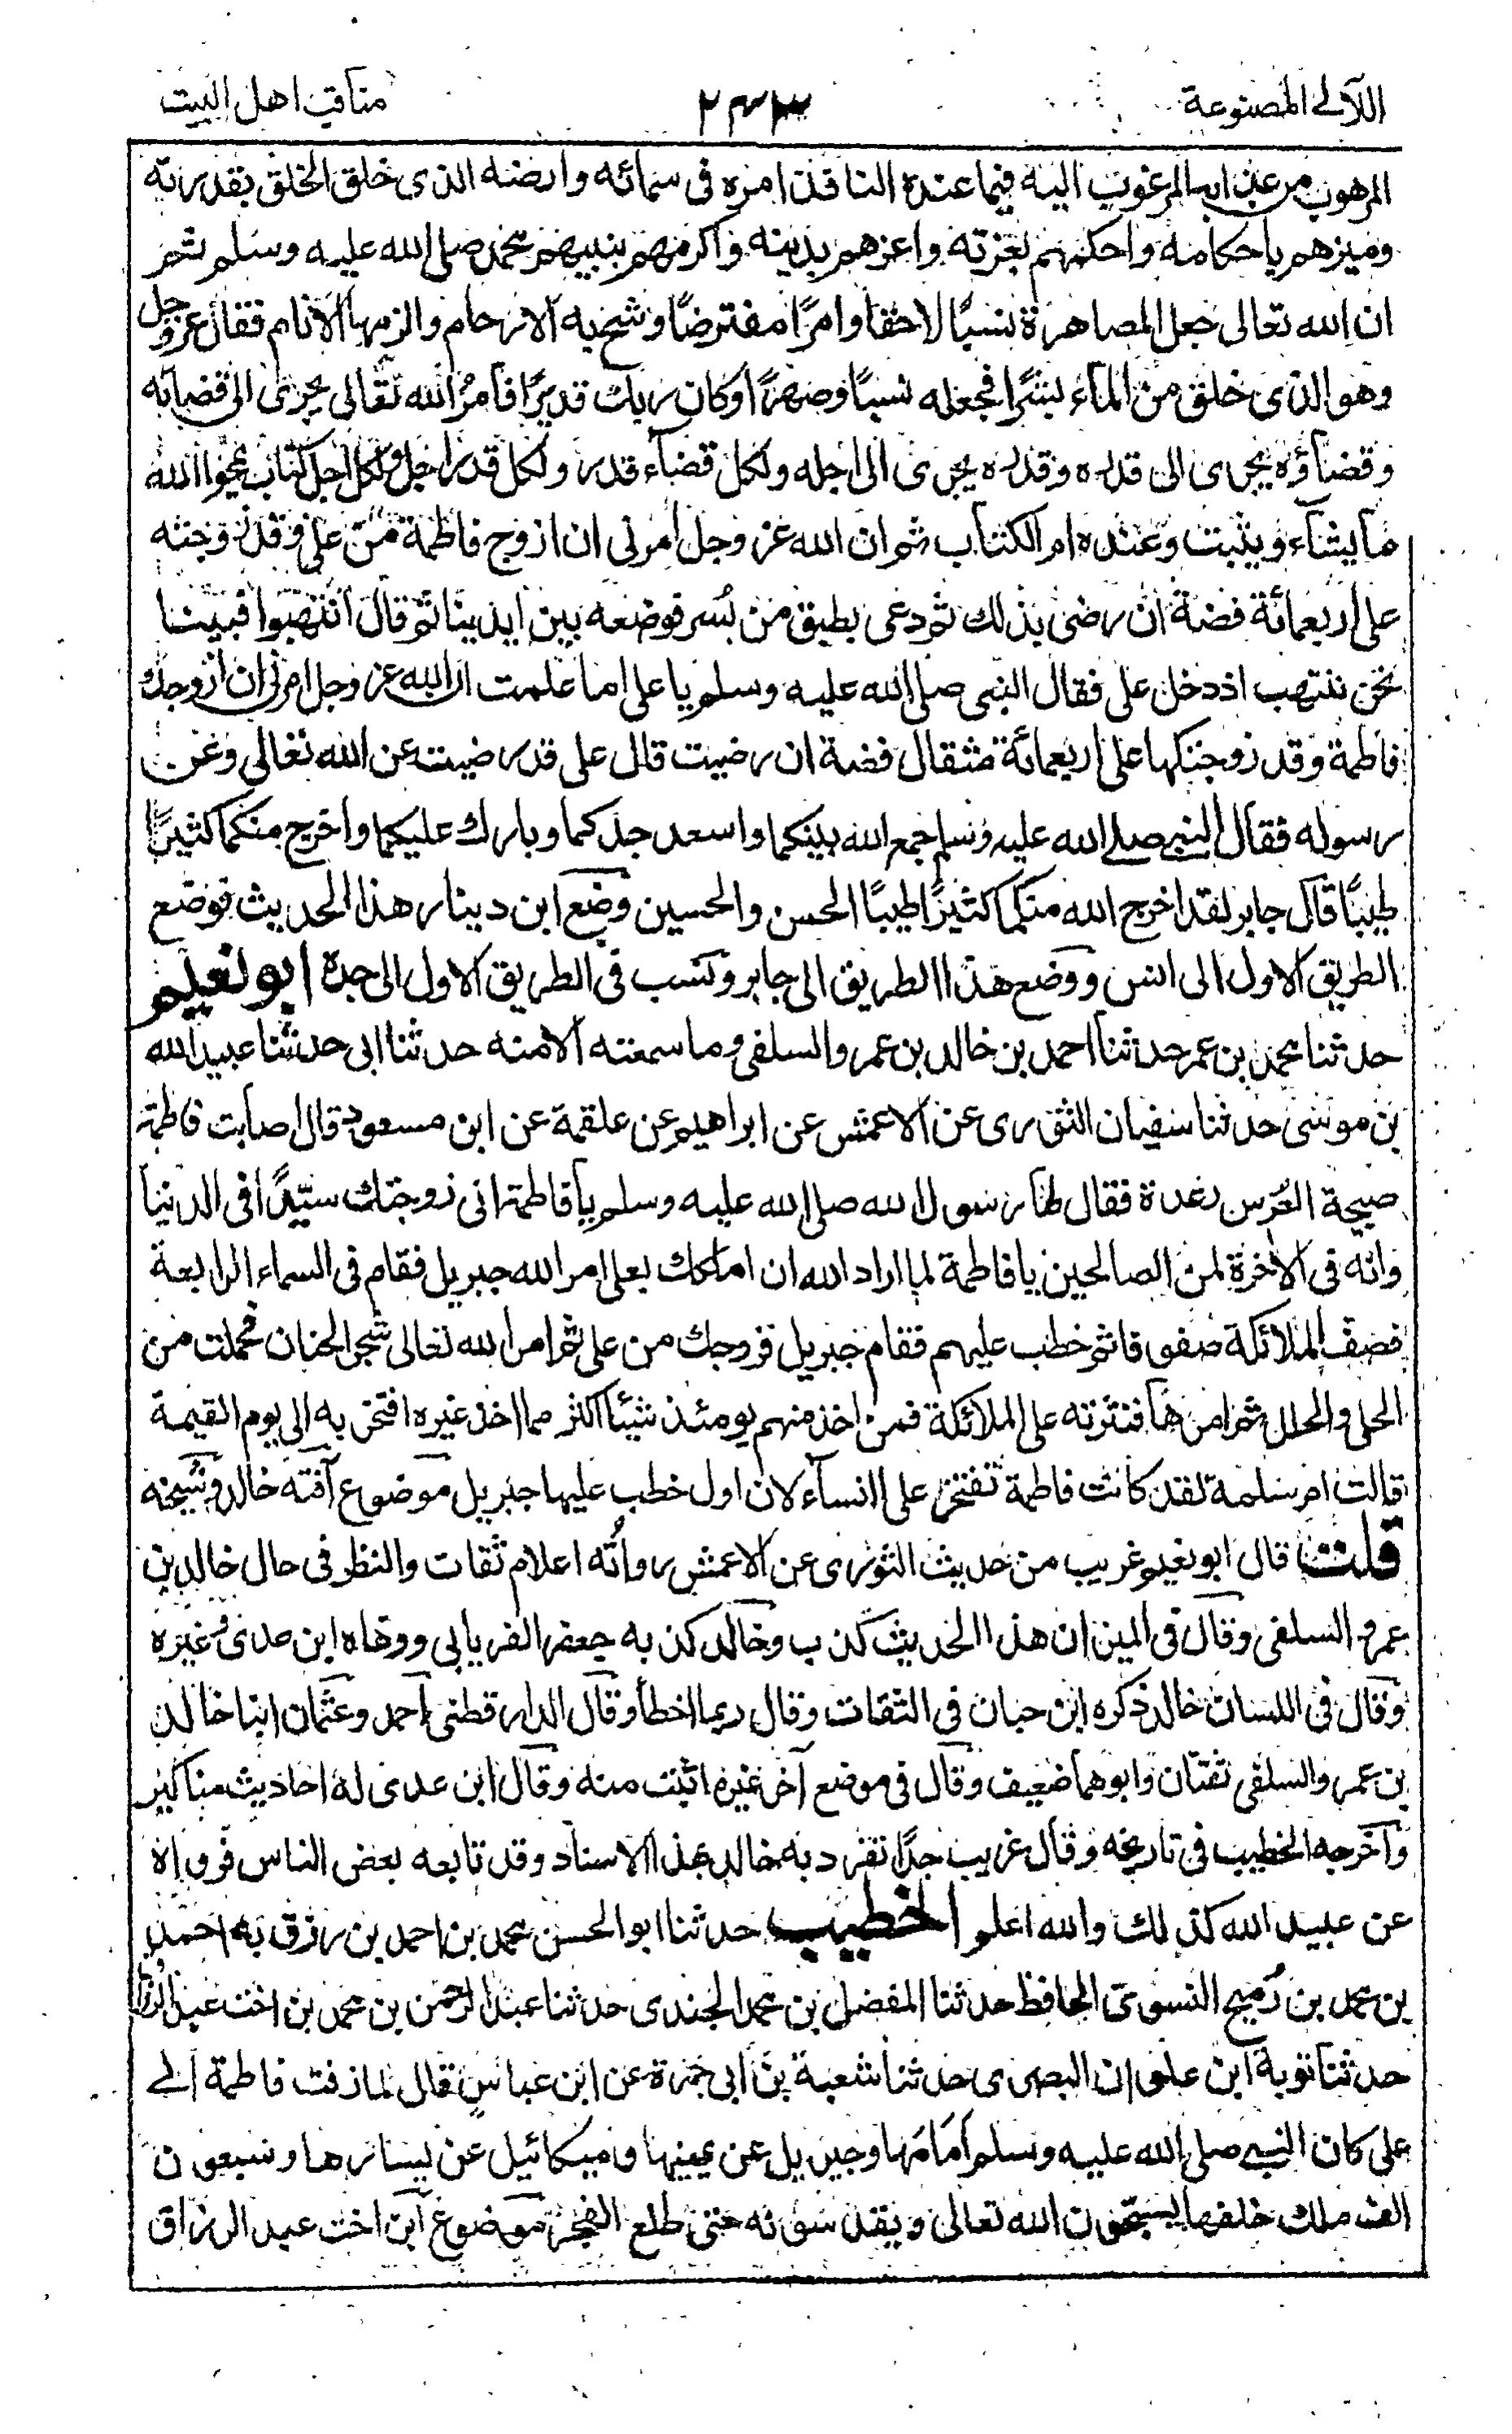 اللآلى المصنوعة
٢٣٣
مناقب اهل البيت
المرهوب من عذابه المرغوب اليه فيما عنده النافذ امره فى سمائه وارضه الذى خلق الخلق بقدرته
وميزهم باحكامه واحكمهم بعزته واعزهم بدينه واكرمهم بنبيهم محمد صلى الله عليه وسلم ثم
ان الله تعالى جعل المصاهرة نسبًا لاحقا وامرًا مفترضًا وشج به الارحام والزمها الانام فقال عز وجل
وهو الذى خلق من المآء بشرًا فجعله نسبًا وصهرًا وكان ربك قديرًا فامرُ الله تعالى يجرى الى قضائه
وقضآؤه يجرى الى قدره وقدره يجرى الى اجله ولكل قضآء قدر ولكل قدر اجل ولكل اجل كتاب يمحوا الله
ما يشآء ويثبت وعنده ام الكتاب ثم ان الله عز وجل امرنى ان ازوج فاطمة من على وقد زوجته
على اربعمائة فضة ان رضى بذلك ثم دعى بطبق من بُسر فوضعه بين ايدينا ثم قال انتهبوا فبينا
نحن ننتهب اذ دخل على فقال النبى صلى الله عليه وسلم يا على اما علمت ان الله عز وجل امرنى ان ازوجك
فاطمة وقد زوجتكها على اربعمائة مثقال فضة ان رضيت قال على قد رضيت عن الله تعالى وعن
رسوله فقال النبى صلى الله عليه وسلم جمع الله بينكما واسعد جدكما وبارك عليكما واخرج منكما كثيرًا
طيبًا قال جابر لقد اخرج الله منكما كثيرًا طيبًا الحسن والحسين وضع ابن دينار هذا الحديث فوضع
الطريق الاول الى انس ووضع هذا الطريق الى جابر ونسب فى الطريق الاول الى جده ابو نعيم
حدثنا محمد بن عمر حدثنا احمد بن خالد بن عمرو السلفى وما سمعته الا منه حدثنا ابى حدثنا عبيد الله
بن موسى حدثنا سفيان الثورى عن الاعمش عن ابراهيم عن علقمة عن ابن مسعود قال اصابت فاطمة
صبيحة العُرس رعدة فقال لها رسول الله صلى الله عليه وسلم يا فاطمة انى زوجتك سيّدًا فى الدنيا
وانه فى الاخرة لمن الصالحين يا فاطمة لما اراد الله ان املكك بعلى امر الله جبريل فقام فى السماء الرابعة
فصف الملائكة صفوفا ثم خطب عليهم فقام جبريل فزوجك من على ثم امر الله تعالى شجر الجنان فحملت من
الحلى والحلل ثم امرها فنثرته على الملائكة فمن اخذ منهم يومئذ شيئا اكثر مما اخذ غيره افتخر به الى يوم القيمة
قالت ام سلمة لقد كانت فاطمة تفتخر على النسآء لان اول خطب عليها جبريل موضوع آفته خالد وشيخه
قلت قال ابو نعيم غريب من حديث الثورى عن الاعمش رواته اعلام ثقات والنظر فى حال خالد بن
عمرو السلفى وقال فى الميزان هذا الحديث كذب وخالد كذبه جعفر الفريابى ووهاه ابن عدى وغيره
وقال فى اللسان خالد ذكره ابن حبان فى الثقات وقال ربما اخطأ وقال الدارقطنى احمد وعثمان ابنا خالد
بن عمرو السلفى ثقتان وابوهما ضعيف وقال فى موضع آخر غيره اثبت منه وقال ابن عدى له احاديث مناكير
واخرجه الخطيب فى تاريخه وقال غريب جدًا تفرد به خالد بهذا الاسناد وقد تابعه بعض الناس فرواه
عن عبيد الله كذلك والله اعلم الخطيب حدثنا ابو الحسن محمد بن احمد بن رزقويه احمد
بن محمد بن رُميح النسوى الحافظ حدثنا المفضل بن محمد الجندى حدثنا عبد الرحمن بن محمد بن اخت عبد الرزاق
حدثنا توبة ابن علوان البصرى حدثنا شعبة بن ابى حمزة عن ابن عباس قال لما زفت فاطمة الى
على كان النبى صلى الله عليه وسلم أمامَها وجبريل عن يمينها وميكائيل عن يسارها وسبعون
الف ملك خلفها يسبحون الله تعالى ويقدسونه حتى طلع الفجر موضوع ابن اخت عبد الرزاق